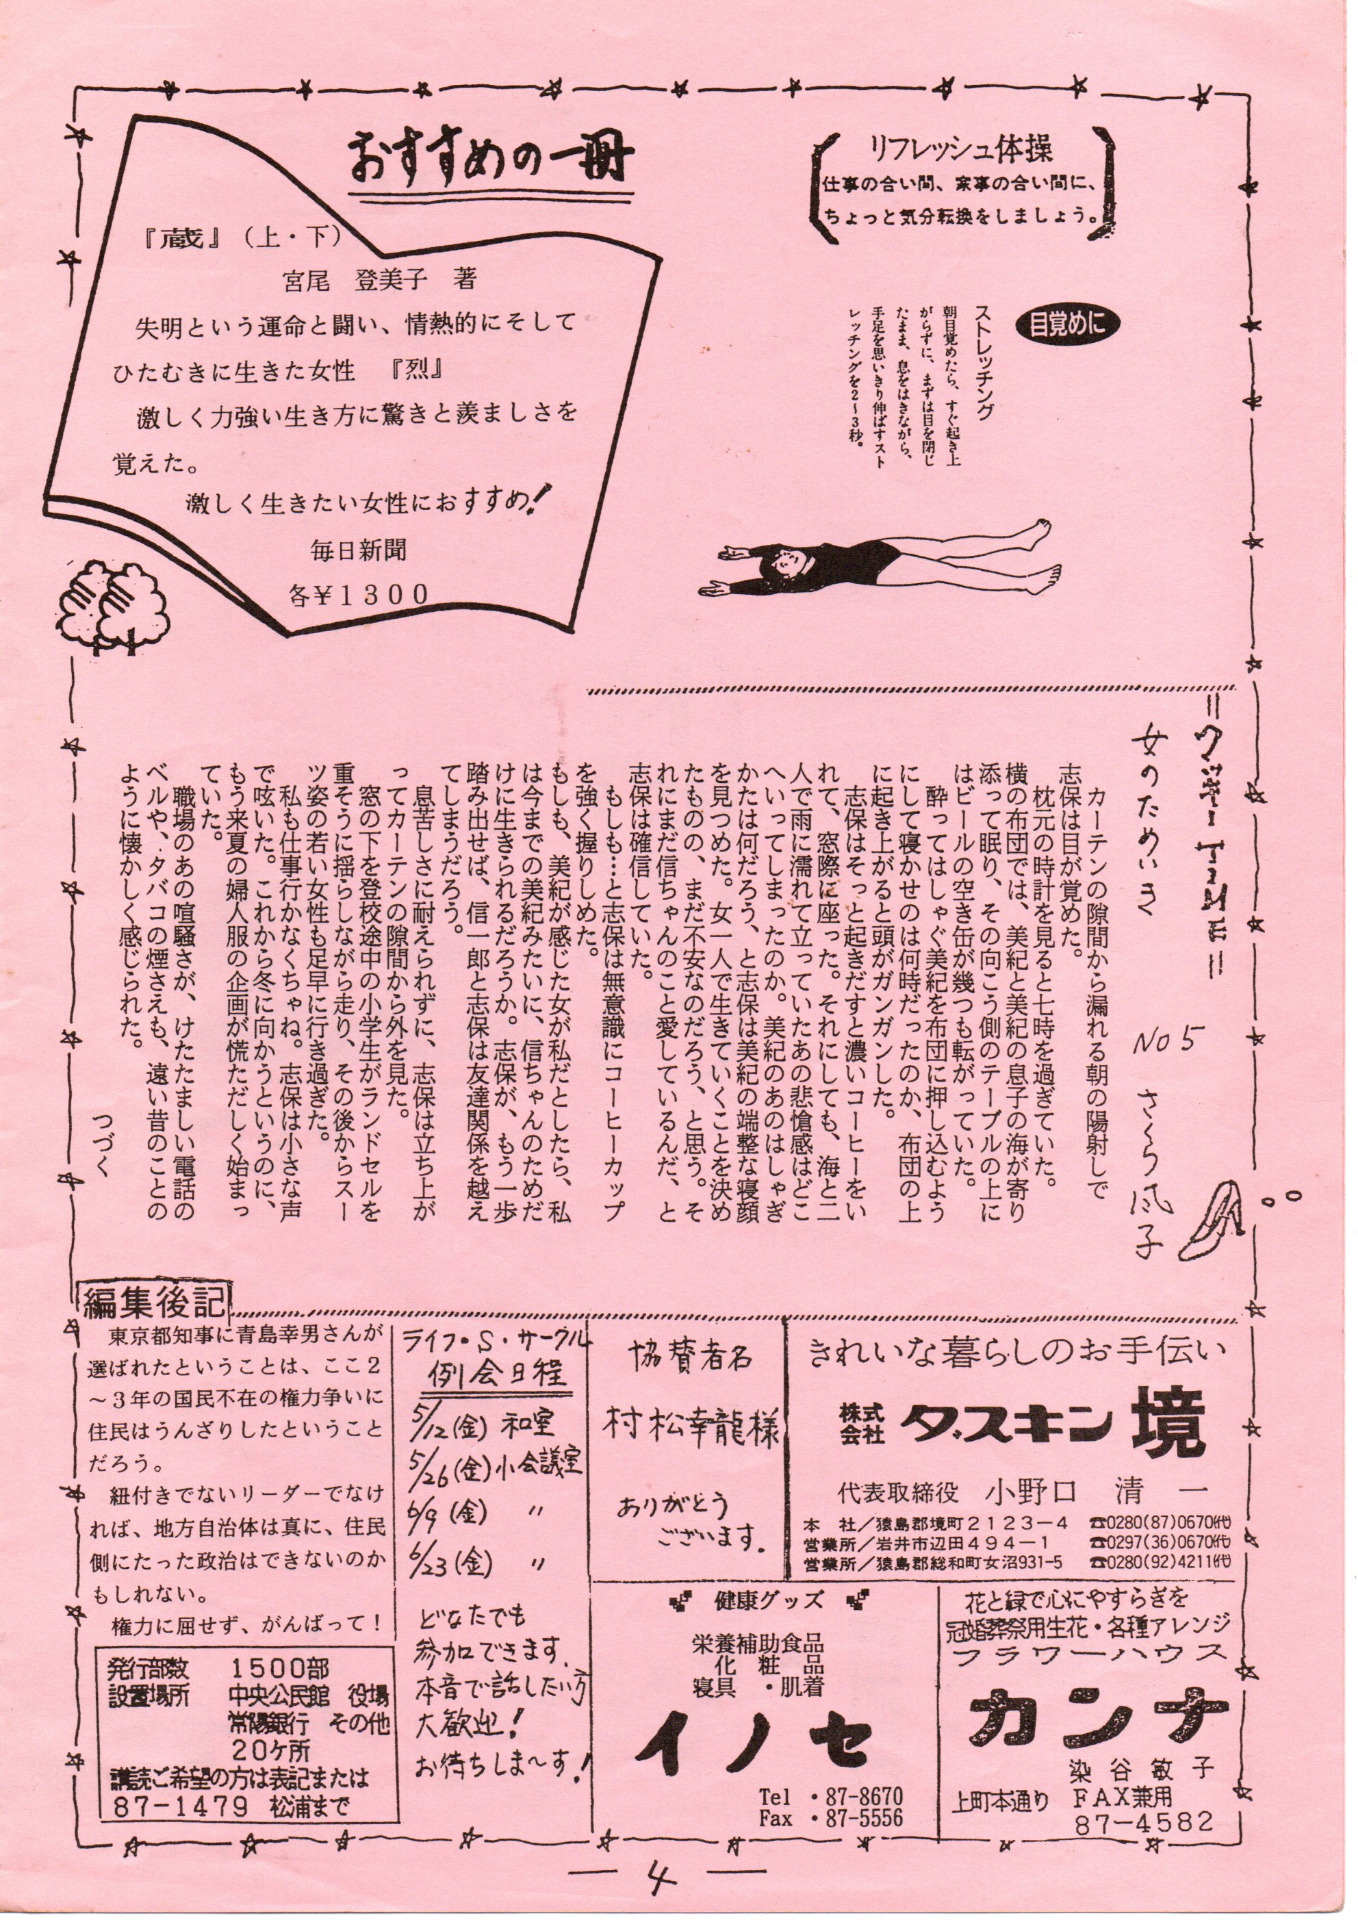 おすすめの一冊
『蔵』（上・下）
宮尾　登美子　著
失明という運命と闘い、情熱的にそして
ひたむきに生きた女性　『烈』
激しく力強い生き方に驚きと羨ましさを
覚えた。
激しく生きたい女性におすすめ！
毎日新聞
各￥１３００
リフレッシュ体操
仕事の合い間、家事の合い間に、
ちょっと気分転換をしましょう。
目覚めに
ストレッチング
朝目覚めたら、すぐ起き上
がらずに、まずは目を閉じ
たまま、息をはきながら、
手足を思いきり伸ばすスト
レッチングを2～3秒。
女のためいき
NO 5
さくら風子
カーテンの隙間から漏れる朝の陽射しで
志保は目が覚めた。
枕元の時計を見ると七時を過ぎていた。
横の布団では、美紀と美紀の息子の海が寄り
添って眠り、その向こう側のテーブルの上に
はビールの空き缶が幾つも転がっていた。
酔ってはしゃぐ美紀を布団に押し込むよう
にして寝かせのは何時だったのか、布団の上
に起き上がると頭がガンガンした。
志保はそっと起きだすと濃いコーヒーをい
れて、窓際に座った。それにしても、海と二
人で雨に濡れて立っていたあの悲愴感はどこ
へいってしまったのか。美紀のあのはしゃぎ
かたは何だろう、と志保は美紀の端整な寝顔
を見つめた。女一人で生きていくことを決め
たものの、まだ不安なのだろう、と思う。そ
れにまだ信ちゃんのこと愛しているんだ、と
志保は確信していた。
もしも…と志保は無意識にコーヒーカップ
を強く握りしめた。
もしも、美紀が感じた女が私だとしたら、私
は今までの美紀みたいに、信ちゃんのためだ
けに生きられるだろうか。志保が、もう一歩
踏み出せば、信一郎と志保は友達関係を越え
てしまうだろう。
息苦しさに耐えられずに、志保は立ち上が
ってカーテンの隙間から外を見た。
窓の下を登校途中の小学生がランドセルを
重そうに揺らしながら走り、その後からスー
ツ姿の若い女性も足早に行き過ぎた。
私も仕事行かなくちゃね。志保は小さな声
で呟いた。これから冬に向かうというのに、
もう来夏の婦人服の企画が慌ただしく始まっ
ていた。
職場のあの喧騒さが、けたたましい電話の
ベルや、タバコの煙さえも、遠い昔のことの
ように懐かしく感じられた。
つづく
編集後記
東京都知事に青島幸男さんが
選ばれたということは、ここ２
～３年の国民不在の権力争いに
住民はうんざりしたということ
だろう。
紐付きでないリーダーでなけ
れば、地方自治体は真に、住民
側にたった政治はできないのか
もしれない。
権力に屈せず、がんばって！
発行部数　１５００部
設置場所　中央公民館　役場
常陽銀行　その他
２０ケ所
購読ご希望の方は表記または
８７－１４７９　松浦まで
ライフ・S・サークル
例会日程
5/12(金) 和室
5/26(金) 小会議室
6/9(金)　〃
6/23(金)　〃
どなたでも
参加できます。
本音で話したい方
大歓迎！
お待ちしま～す！
協賛者名
村松幸龍様
ありがとう
ございます。
きれいな暮らしのお手伝い
株式会社 ダスキン境
代表取締役　小野口　清一
本　社／猿島郡境町２１２３－４　☎0280(87)0670代
営業所／岩井市辺田４９４－１　☎0297(36)0670代
営業所／猿島郡総和町女沼931-5　☎0280(92)4211代
健康グッズ
栄養補助食品
化　粧　品
寝具　・肌着
イノセ
Tel ・87-8670
Fax ・87-5556
花と緑で心にやすらぎを
冠婚葬祭用生花・各種アレンジ
フラワーハウス
カンナ
染谷敏子
上町本通り　ＦＡＸ兼用
８７－４５８２
— 4 —